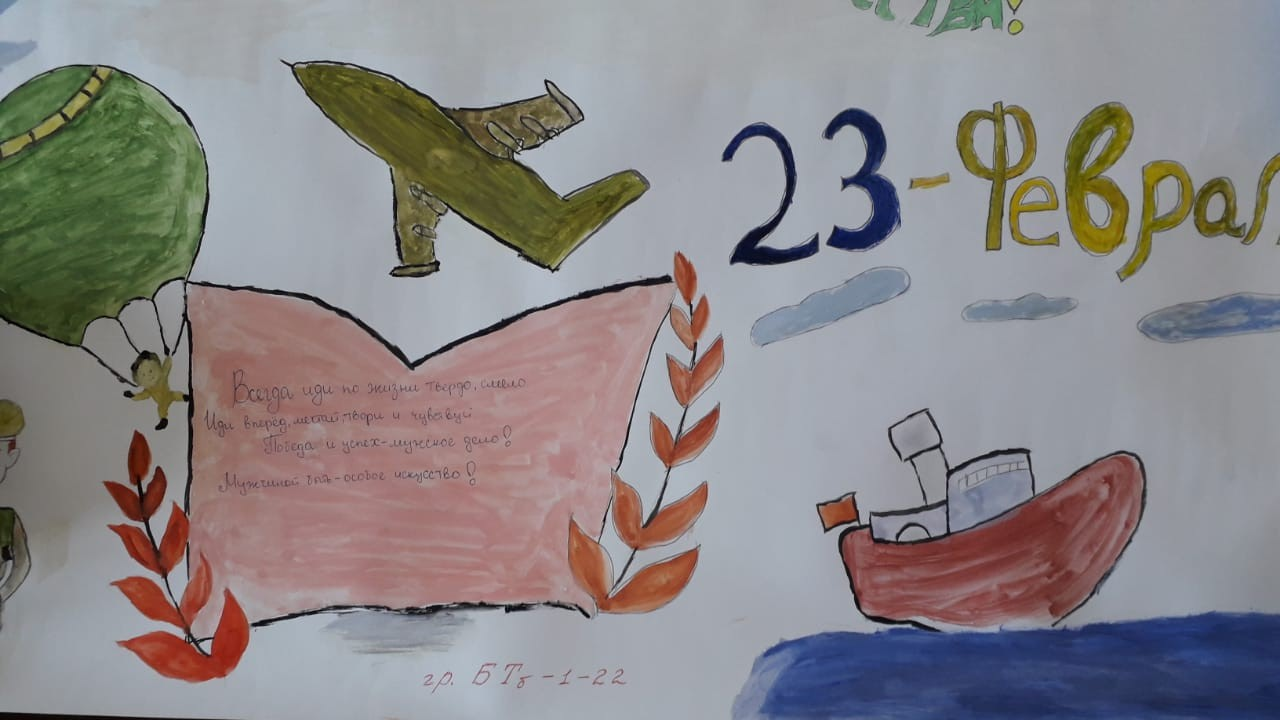 23-Феврал
Всегда иди по жизни твердо, смело
Иди вперёд, мечтай, твори и чувствуй
Победа и успех-мужское дело!
Мужчиной быть-особое искусство!
гр. БТб-1-22